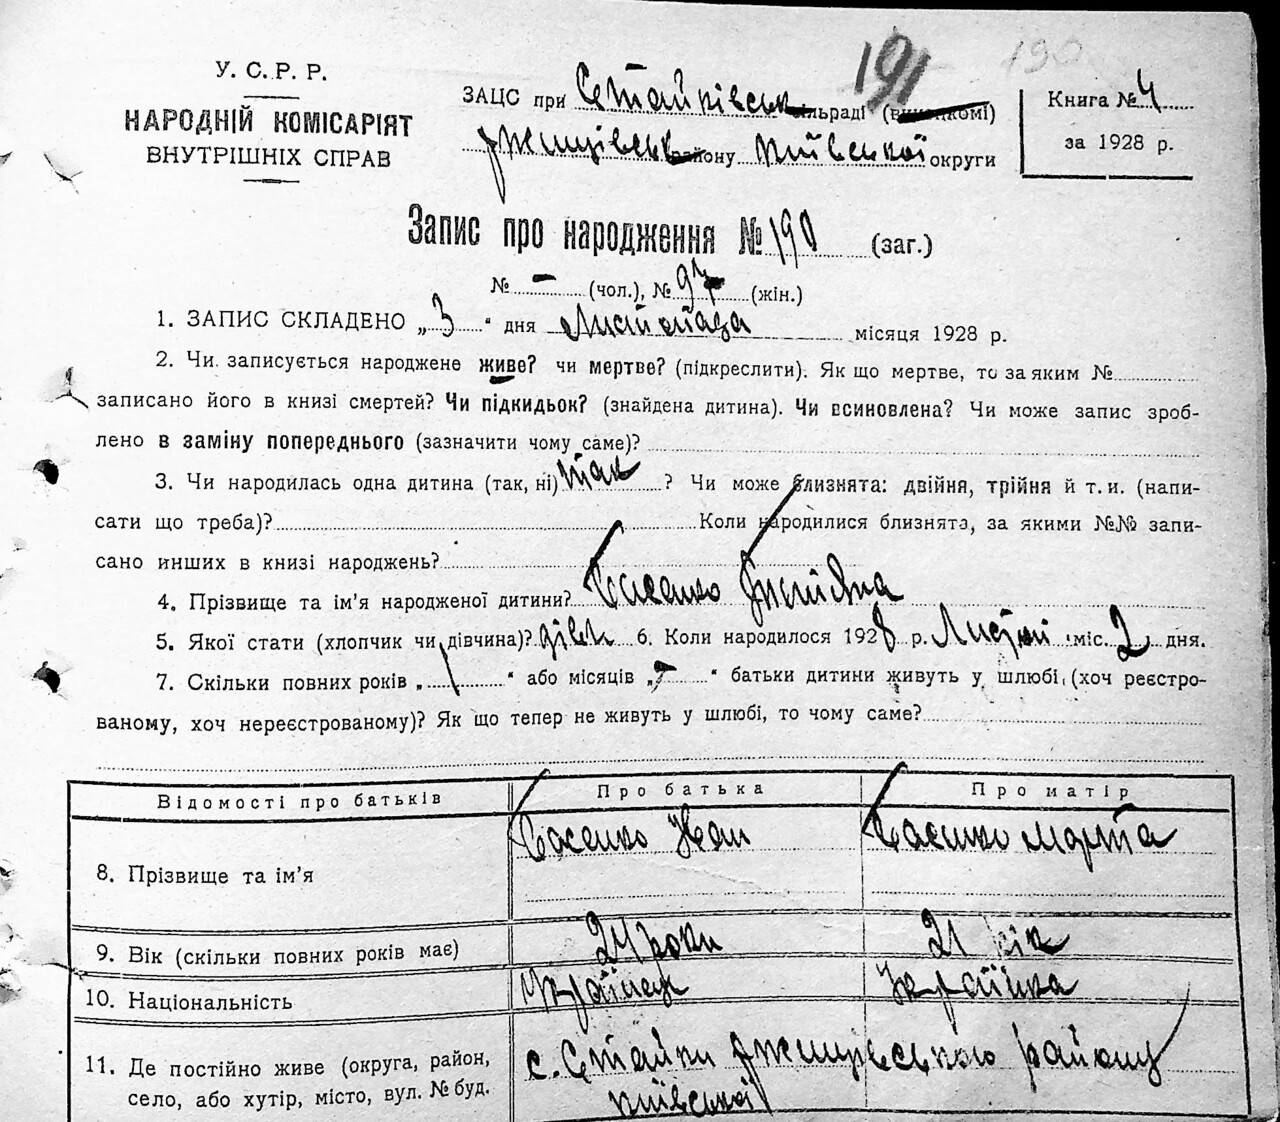 191
190
У. С. Р. Р.
НАРОДНІЙ КОМІСАРІЯТ
ВНУТРІШНІХ СПРАВ
ЗАЦС при Стайківськ сільраді (виконкомі)
Ржищівськ району Київської округи
Книга № 4
за 1928 р.
Запис про народження № 190 (заг.)
№ – (чол.), № 97 (жін.)
1. ЗАПИС СКЛАДЕНО „3" дня Листопада місяця 1928 р.
2. Чи записується народжене живе? чи мертве? (підкреслити). Як що мертве, то за яким №
записано його в книзі смертей? Чи підкидьок? (знайдена дитина). Чи всиновлена? Чи може запис зроб-
лено в заміну попереднього (зазначити чому саме)?
3. Чи народилась одна дитина (так, ні) так ? Чи може близнята: двійня, трійня й т. и. (напи-
сати що треба)? Коли народилися близнята, за якими №№ запи-
сано инших в книзі народжень?
4. Прізвище та ім'я народженої дитини? Басенко
5. Якої стати (хлопчик чи дівчина)? дівч 6. Коли народилося 1928 р. Листоп міс. 2 дня.
7. Скільки повних років „ " або місяців „ " батьки дитини живуть у шлюбі (хоч реєстро-
ваному, хоч нереєстрованому)? Як що тепер не живуть у шлюбі, то чому саме?
Відомості про батьків Про батька Про матір
8. Прізвище та ім'я Басенко Іван Басенко Марта
9. Вік (скільки повних років має) 24 роки 21 рік
10. Національність Українець Українка
11. Де постійно живе (округа, район, с. Стайки Ржищівського району
село, або хутір, місто, вул. № буд. Київської